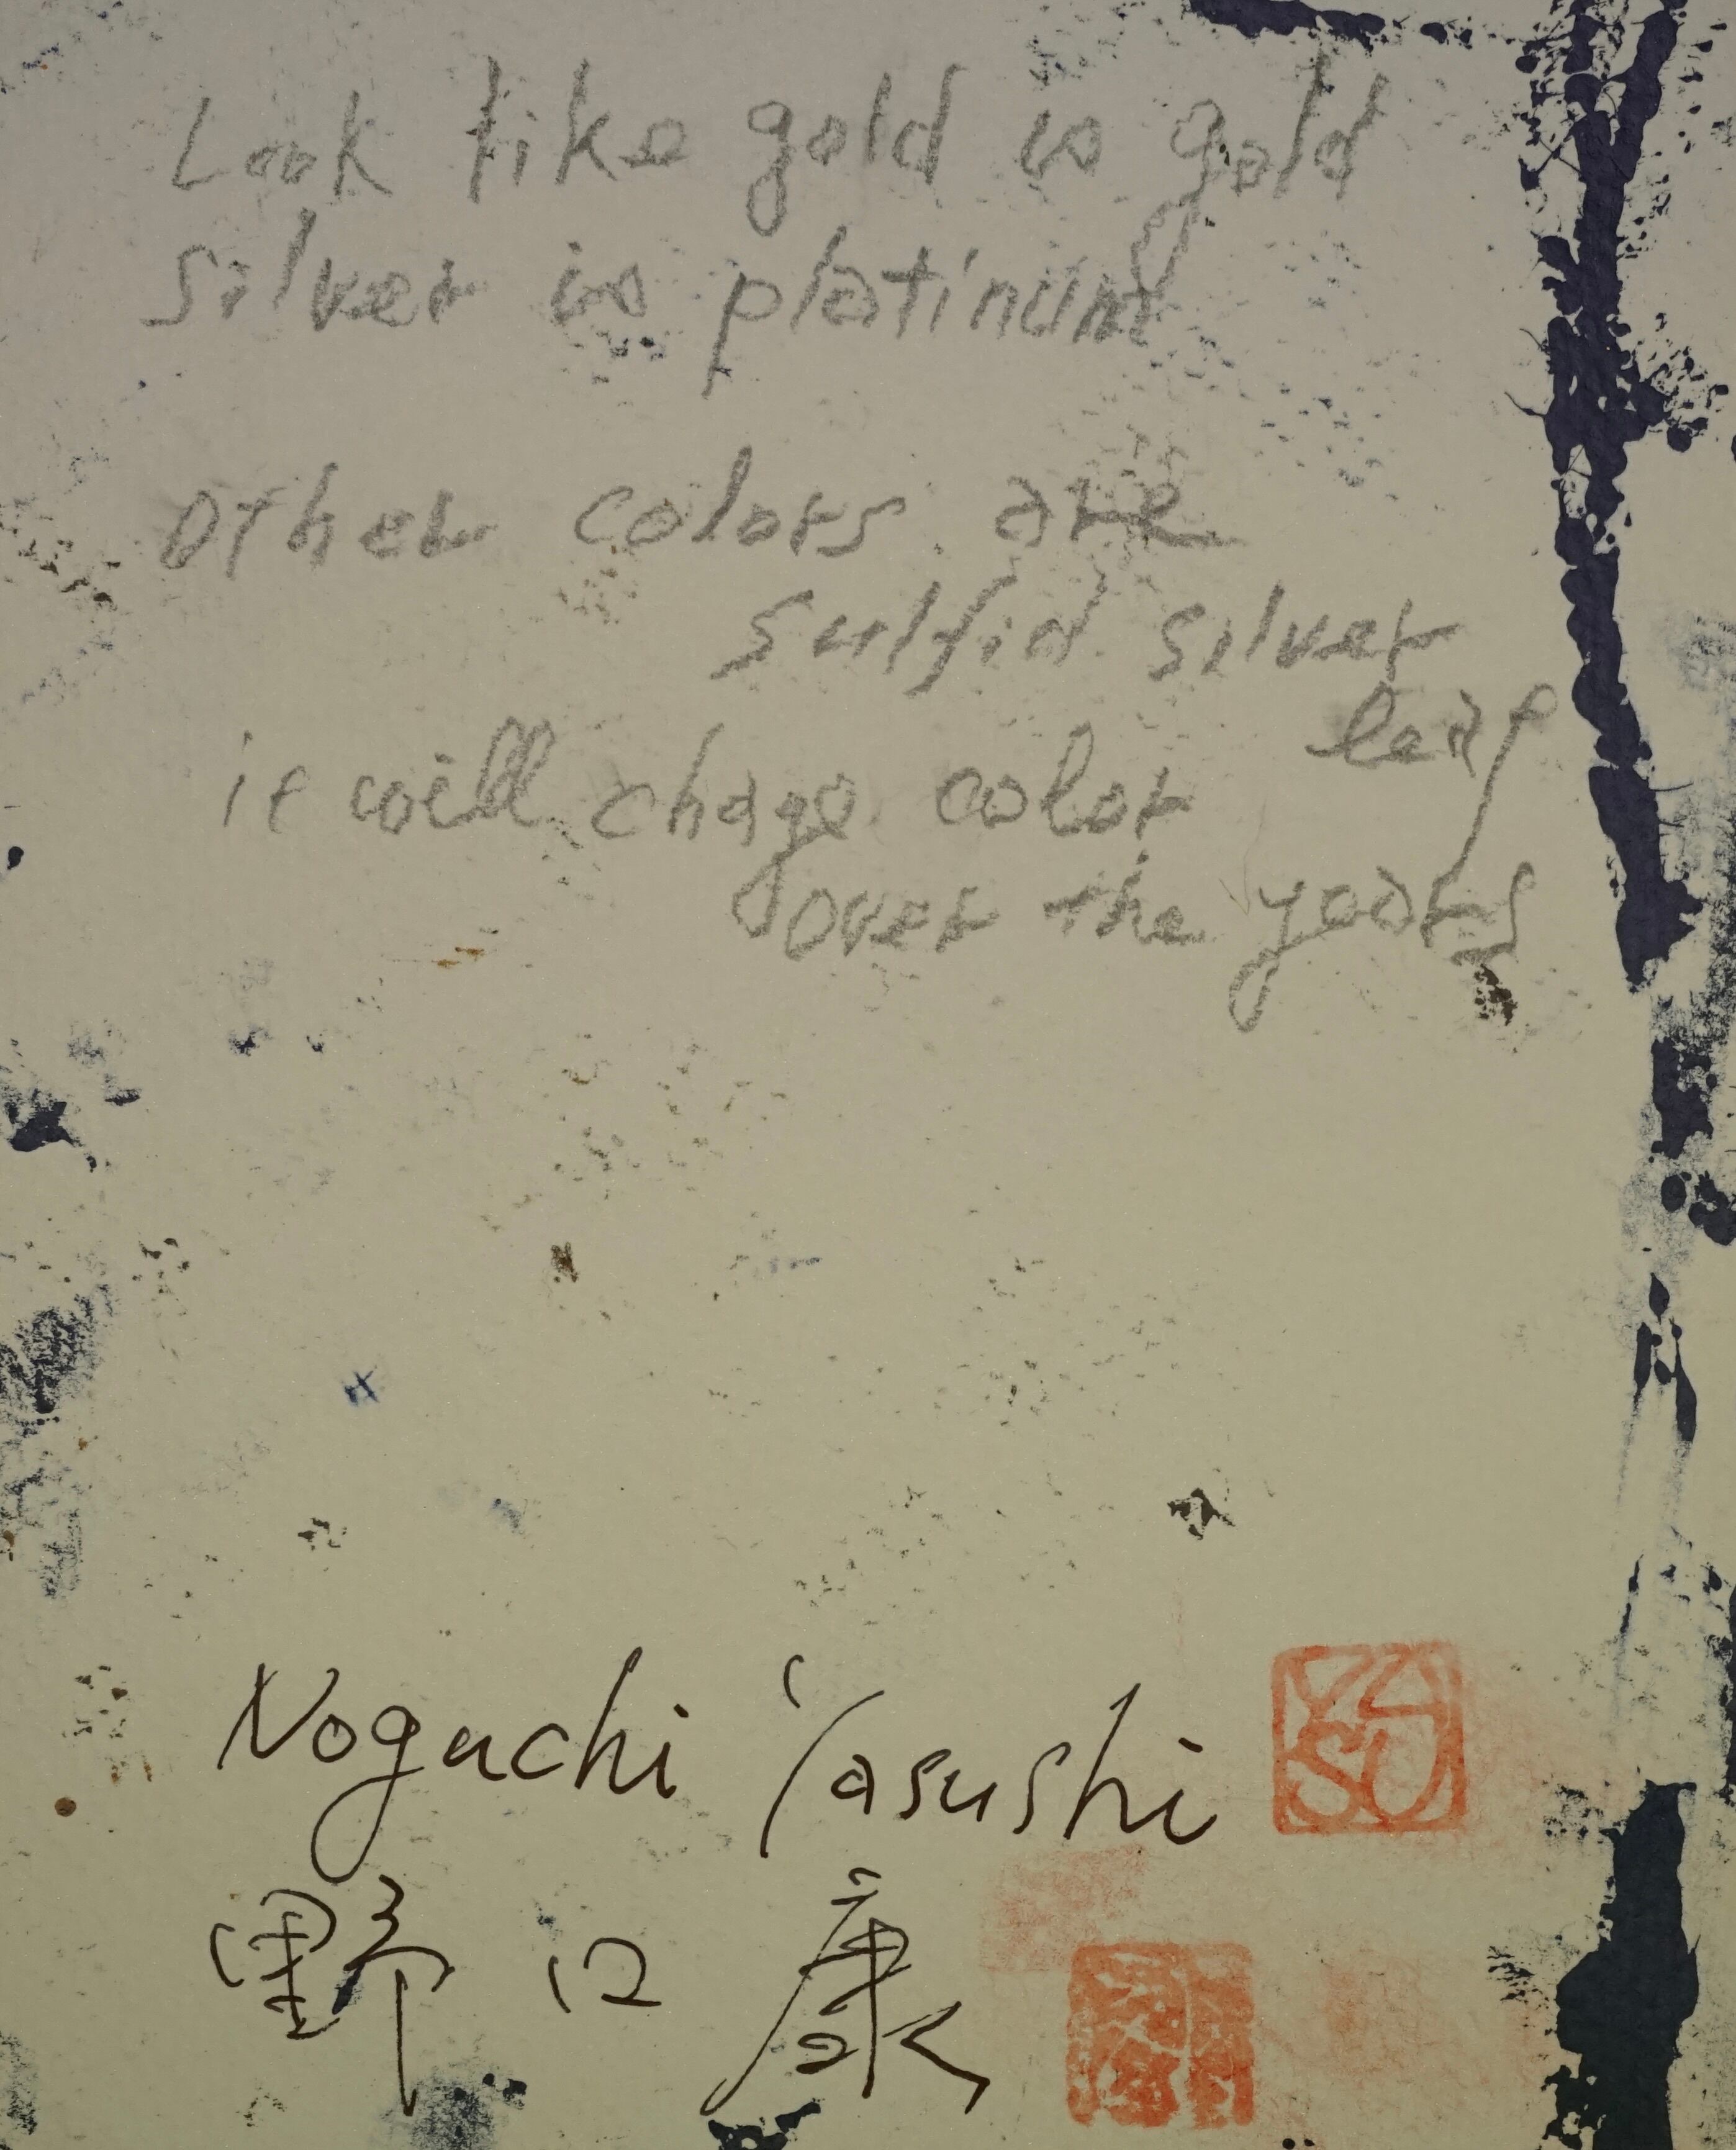 Look like gold is gold
silver is platinum
other colors are
sulfid silver
leaf
it will chage color
over the years
Noguchi Yasushi
YA
SU
野口 康